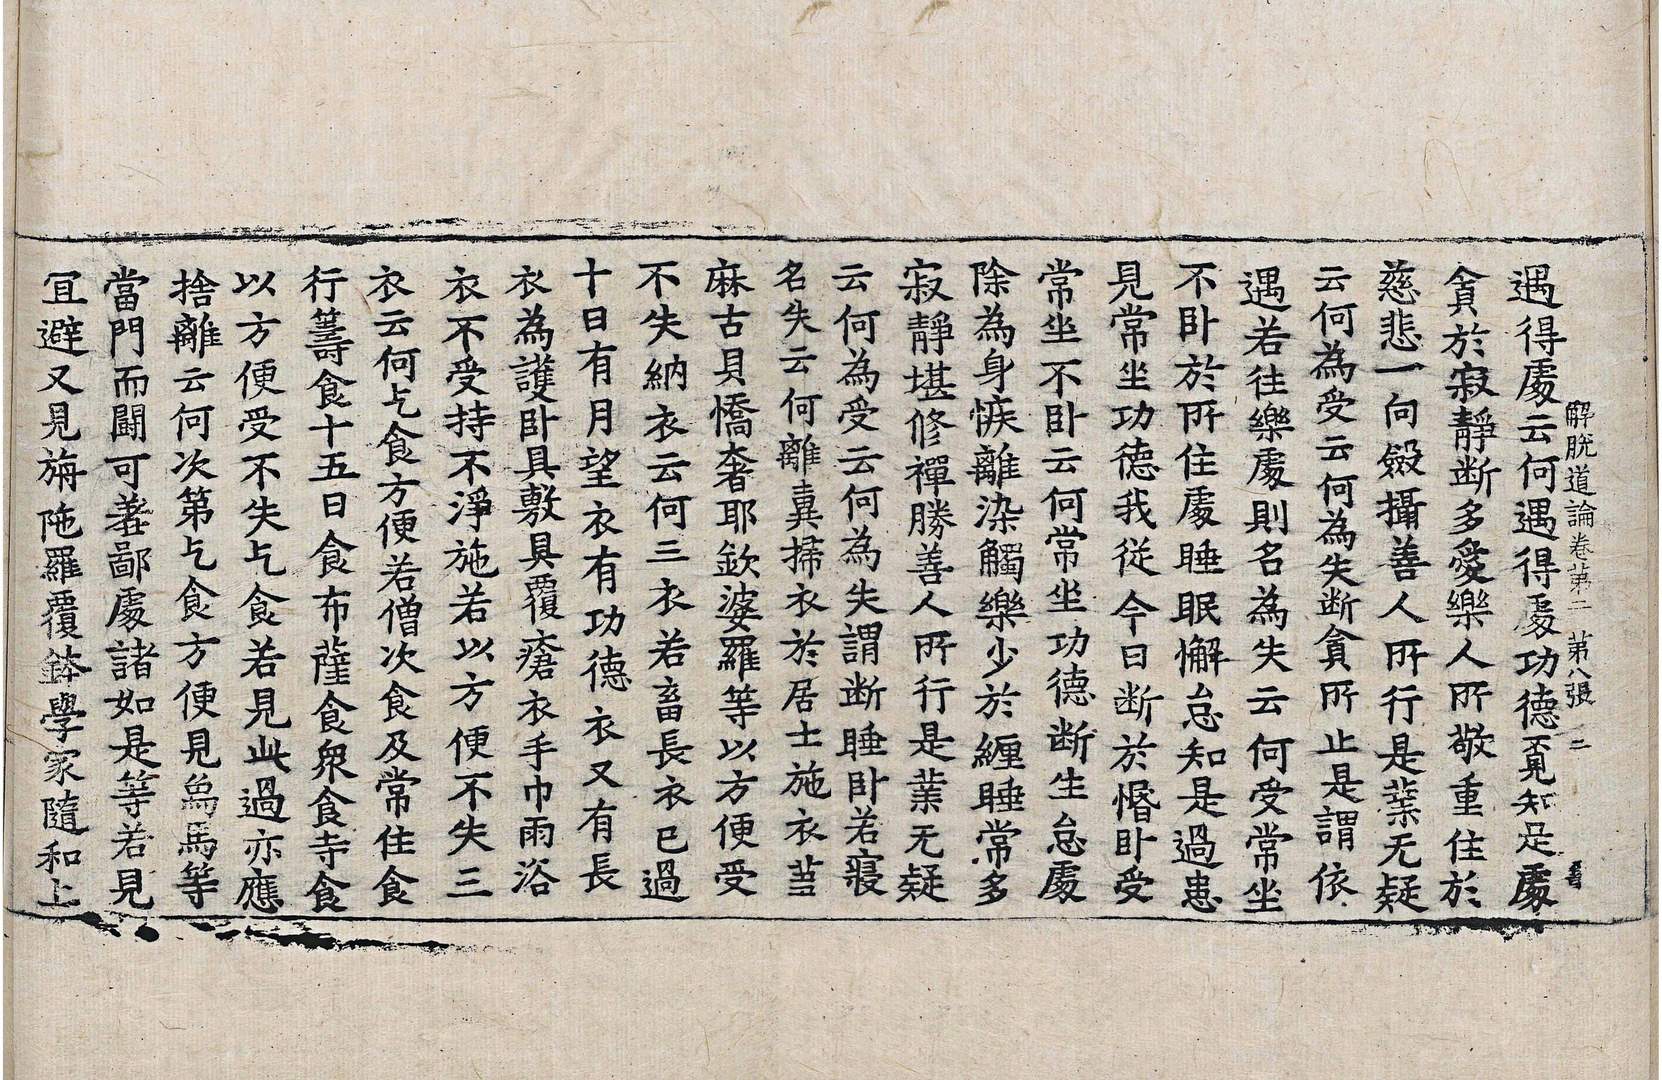 解脫道論卷第二 第八張 二
遇得處云何遇得處功德覔知足處
貪於寂靜断多愛樂人所敬重住於
慈悲一向斂攝善人所行是業无疑
云何為受云何為失断貪所止是謂依
遇若往樂處則名為失云何受常坐
不卧於所住處睡眠懈怠知是過患
見常坐功德我從今日断於惛卧受
常坐不卧云何常坐功德断生怠處
除為身㾕離染觸樂少於纏睡常多
寂靜堪修禪勝善人所行是業无疑
云何為受云何為失謂断睡卧若寢
名失云何離糞掃衣於居士施衣荳
麻古貝憍奢耶欽婆羅等以方便受
不失納衣云何三衣若畜長衣已過
十日有月望衣有功德衣又有長
衣為護卧具敷具覆瘡衣手巾雨浴
衣不受持不淨施若以方便不失三
衣云何乞食方便若僧次食及常住食
行籌食十五日食布薩食衆食寺食
以方便受不失乞食若見此過亦應
捨離云何次第乞食方便見烏馬等
當門而鬪可𦿆鄙處諸如是等若見
冝避又見旃陁羅覆鉢學家隨和上